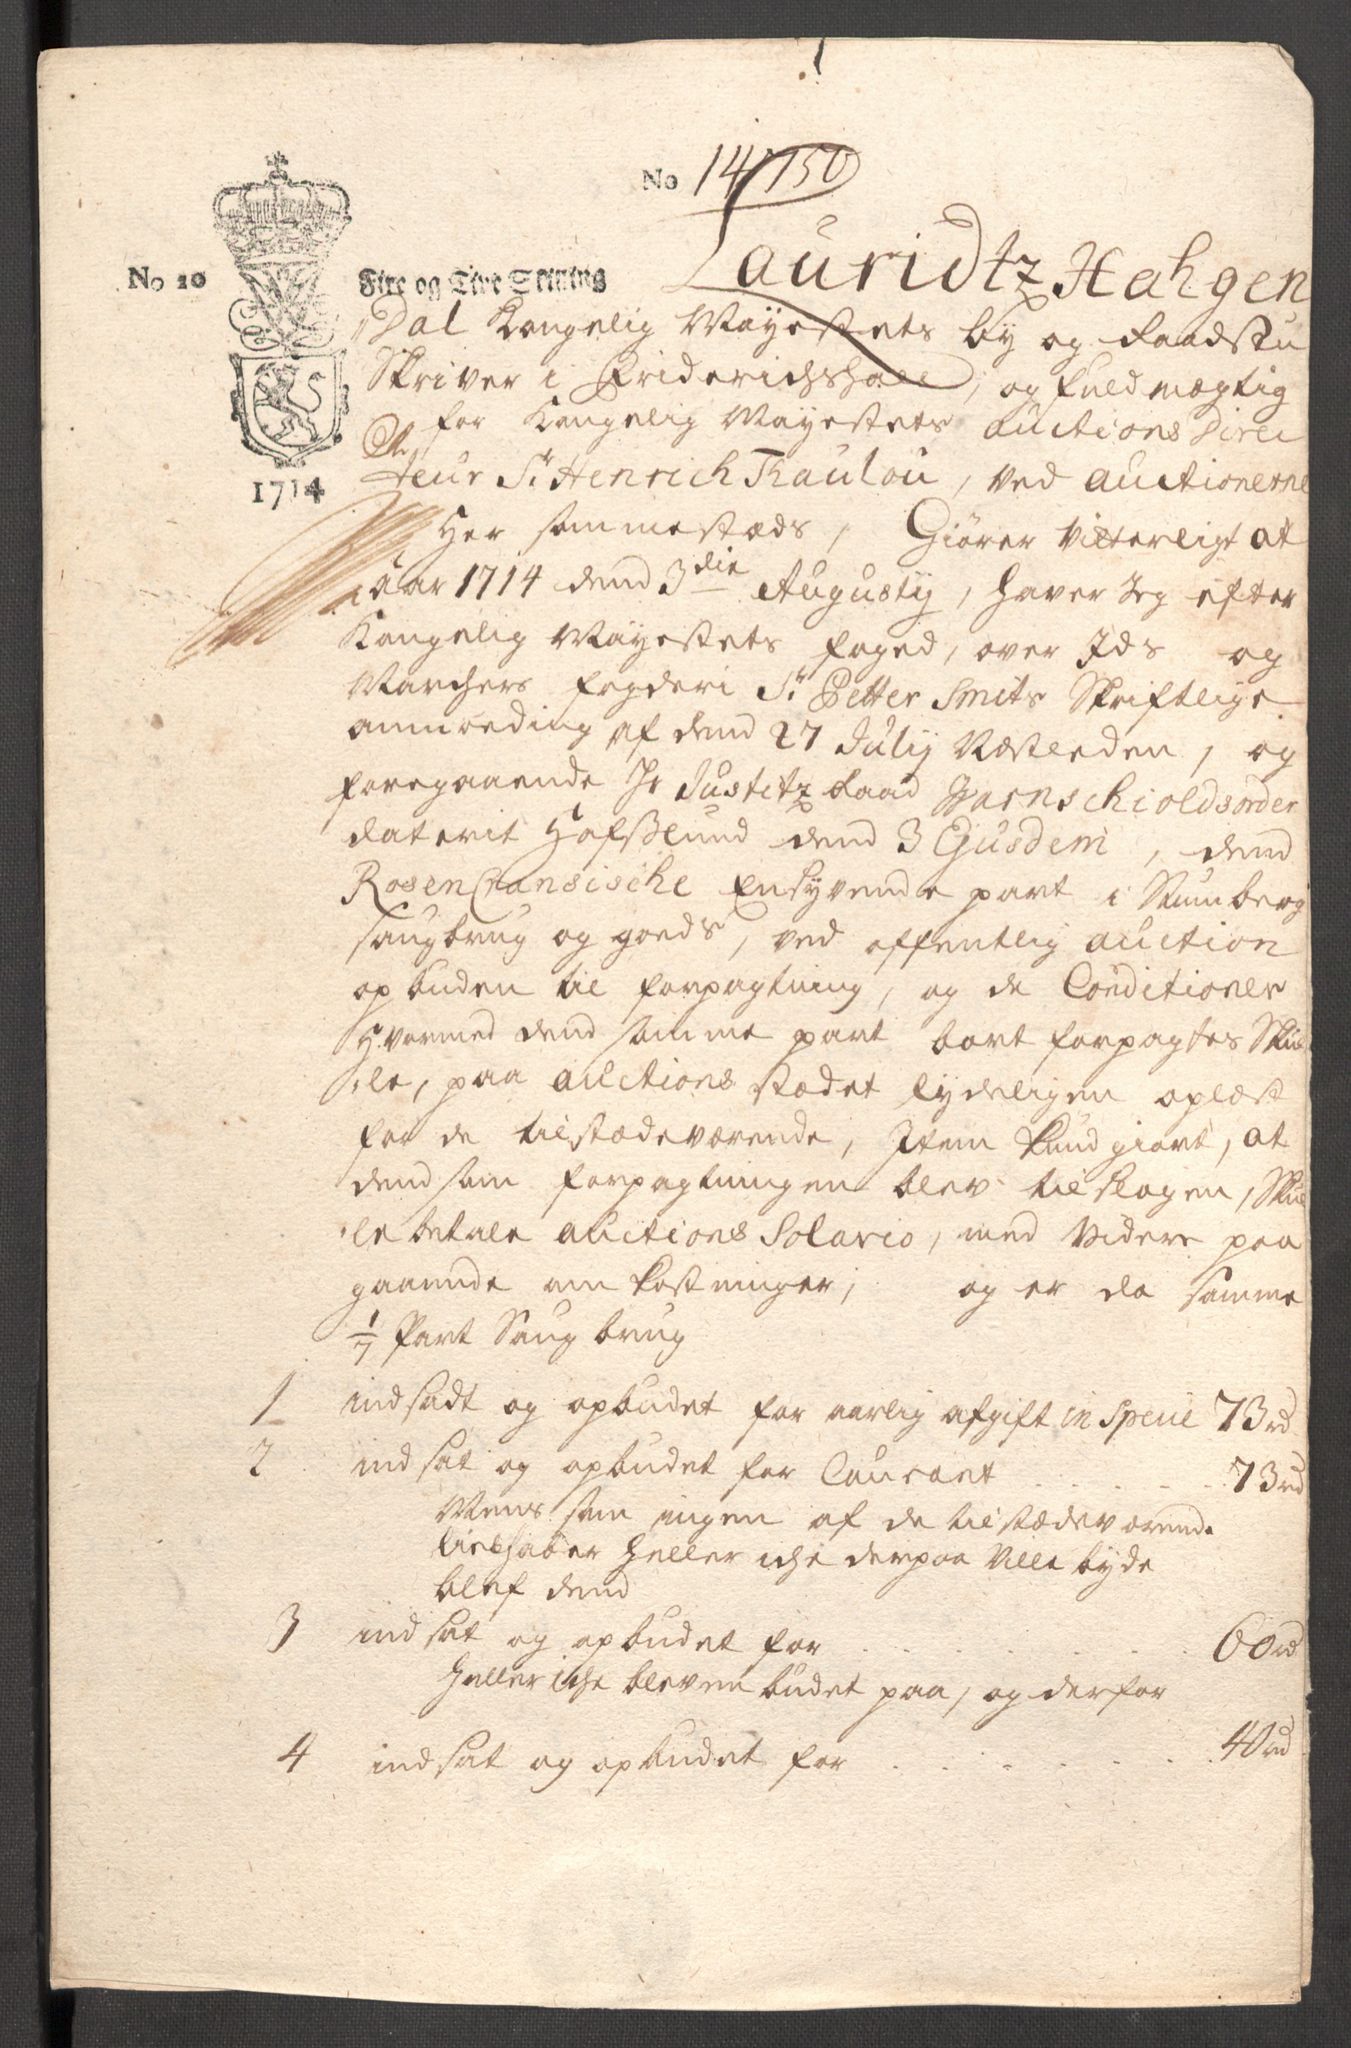 No 14750
No 20
Fire og Tive Skilling
1714
Lauridtz Hahgen
Dal Kongelig Mayestets by og Raadstu
Skriver i Friderichshald, og fuldmegtig
for Kongelig Mayestets Auctions Direc
teur Sr Henrich Thaulou, ved auctionerne
Her sammestæds, Giörer Vitterligt at
aar 1714 dend 3die Augustij, haver Jeg efter
Kongelig Mayestets foged, over Ids og
Marchers fogderi Sr Petter Smits Skriftlige
anmoding af dend 27 Julij Næstleden, og
foregaaende Hr Justitz Raad Hiernschiolds order
daterit Hafslund dend 3 Ejusdem, dend
Rosencransische Ensyvende part i
saugbrug og goeds, ved offentlig auction
opbuden til forpagtning, og de Conditioner
Hvormed dend samme part bort forpagtes Skul
le, paa auctions stædet lydeligen oplæst
for de tilstædeværende, Item kundgiort, at
dend som forpagtningen blev tilslagen, Skul
le betale auctions Solario, med videre paa
gaaende omkostninger, og er da samme
1/7 Part Saugbrug
1 indsadt og opbudet for aarlig afgift in Specie 73 rd
2 indsat og opbudet for Courant . . . . . 73 rd
Mens som ingen af de tilstædeværende
liebhaber heller iche derpaa Ville byde
blef dend
3 indsat og opbudet for . . . . . . 60 rd
heller iche bleven budet paa, og derfor
4 indsat og opbudet for . . . . . . 40 rd